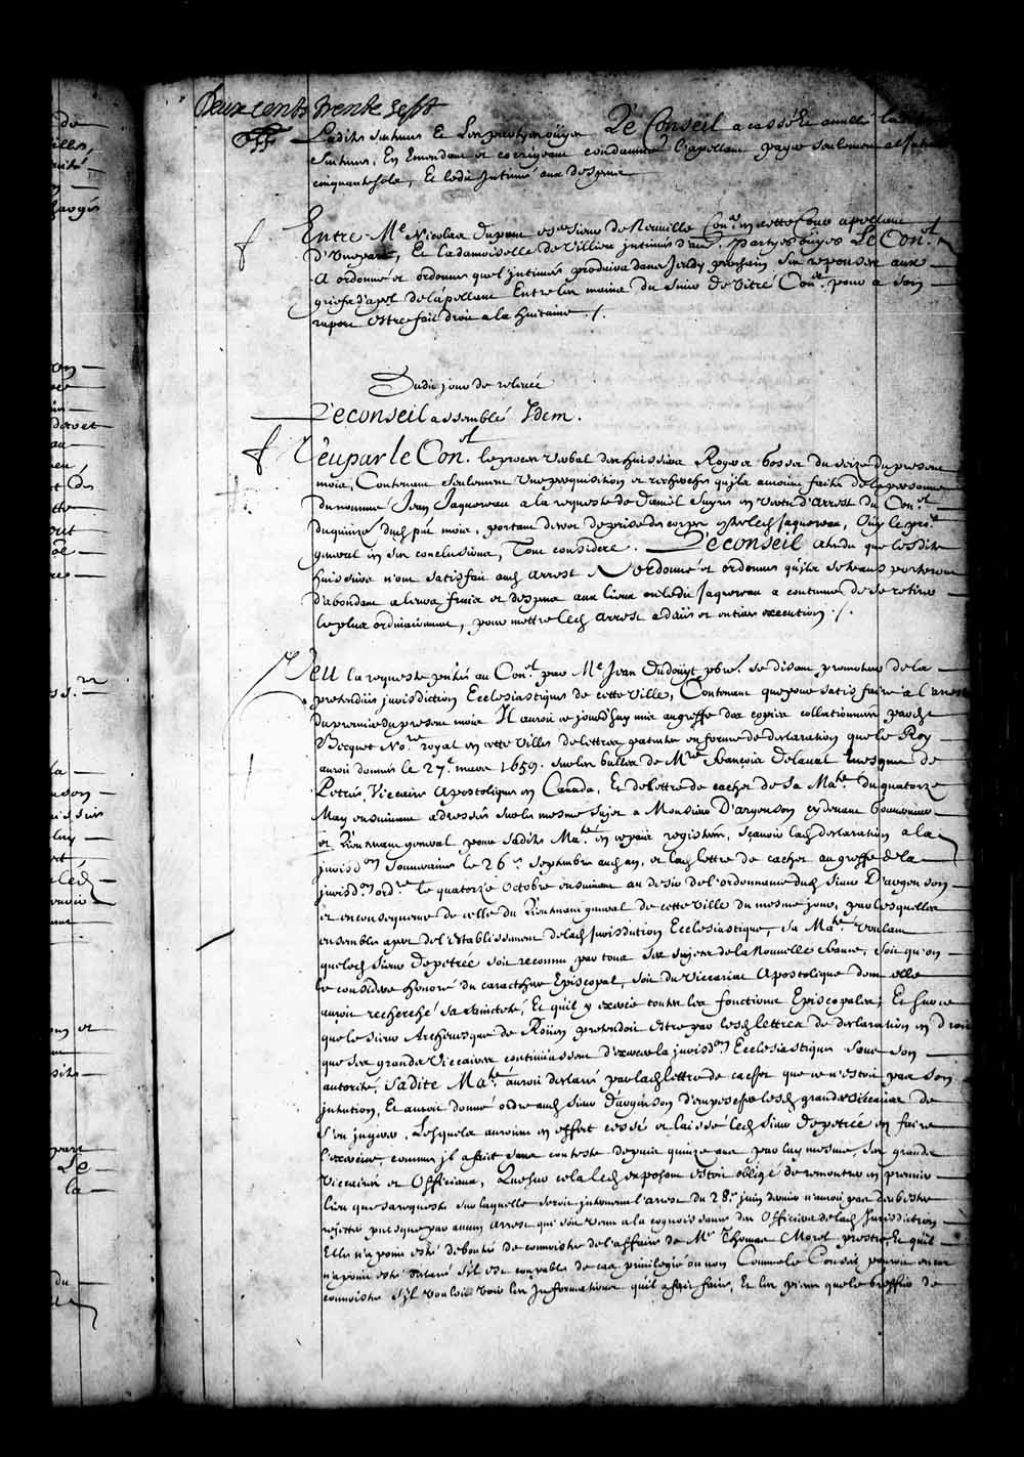 Deux cents trente sept
Ladite sentence Et Les partyes ouÿes Le Conseil a cassé Et annullé ladite
sentence, En Emendant et corrigeant condamne l'apellant payer seulement
cinquante sols, Et ledit Intimé aux despens
Entre Me Nicolas Dupont escr sieur de Neuville Conr en cette Cour apellant
d'une part, Et la damoiselle de Villiers intimée d'au. partyes ouÿes Le Conl.
A ordonné et ordonne que l'intimée produira dans Jeudy prochain ses reponses aux
griefs d'apel de l'apellant Entre les mains du sieur De Vitré Conr. pour a son
raport estre fait droit a la huitaine /.
Dudit jour de relevée
Le conseil assemblé Idem.
Veu par le Conl. le procez verbal des huissiers Roger et Gosset du seize du present
mois, Contenant seulement une perquisition et recherches qu'ils auroient faites de la personne
du nommé Jean Jaquereau a la requeste de Daniel Suyre en vertu d'arrest du Conl.
du quinze dud. pnt mois, portant decret de prise de corps contre led. Jaquereau, Ouÿ le pror.
general en ses conclusions, Tout consideré. Le conseil atendu que lesdits
huissiers n'ont satisfait aud. arrest A ordonné et ordonne qu'ils se transporteront
d'abondant a leurs fraix et despens aux lieux ou ledit Jaquereau a coutume de se retirer
le plus ordinairement, pour mettre led. arrest a deüe et entiere execution /.
Veu la requeste pntée au Conl. par Me Jean Dudouyt pbre. se disant promoteur de la
pretendüe jurisdiction Ecclesiastique de cette ville, Contenant que pour satisfaire a l'arrest
du premier du present mois Il auroit ce jourd'huy mis au greffe des copies collationnées par
Becquet Nore. royal en cette ville de lettres patentes en forme de declaration que le Roy
auroit données le 27e mars 1659. sur les bulles de Mre François De laval Evesque de
Petrée, Viccaire Apostolique en Canada, Et de lettre de cachet de Sa Mate. du quatorze
May ensuivant adressée sur le mesme sujet a Monsieur D'argenson cy devant Gouverneur
et Lieutenant general pour sadite Mate. en ce païs registrées, sçavoir lad. declaration a la
jurisdon souveraine le 26e. Septembre aud. an, et lad. lettre de cachet au greffe de la
jurisdon ordre. le quatorze octobre ensuivant au desir de l'ordonnance dud. sieur D'argenson
et en consequence de celle du Lieutenant general de cette ville du mesme jour, par lesquelles
ensemble apert de l'establissement de lad. jurisdiction Ecclesiastique, sa Mate. voulant
que led. sieur de petrée soit reconnu par tous ses sujets de la Nouvelle france, soit qu'on
le considere honoré du caracthere Episcopal, soit du Viccariat Apostolique dont elle
auroit recherché sa Sainteté, Et qu'il y exerce toutes les fonctions Episcopales; Et sur ce
que le sieur Archevesque de Roüen pretendoit estre par lesd. lettres de declaration en droit
que ses grands Viccaires continuassent d'exercer la jurisdon Ecclesiastique sous son
autorité, Sadite Mate. auroit declaré par lad. lettre de cachet que ce n'estoit pas son
intention, Et auroit donné ordre aud. sieur d'argenson d'empescher lesd. grands viccaires de
s'en ingerer. Lesquels auroient en effet cessé et laissé led. sieur de petrée en faire
l'exercice, comme il a fait sans conteste depuis quinze ans par luy mesme, ses grands
viccaires et Officiaux, Que sur cela led. exposant estoit obligé de remontrer en premier
lieu que sa requeste sur laquelle seroit intervenu l'arrest du 28e. juin dernier n'auroit pas deub estre
rejettée puisque par aucun arrest qui soit venu a la cognoissance des Officiers de lad. Jurisdiction
Elle n'a point esté deboutée de connoistre de l'affaire de Me Thomas Morel prestre, Et qu'il
n'a point esté declaré s'il est coupable de cas privilegié ou non Comme le Conseil pouvoit encor
connoistre s'il vouloit voir les Informations qu'il a fait faire, Et les pieces que le greffier de